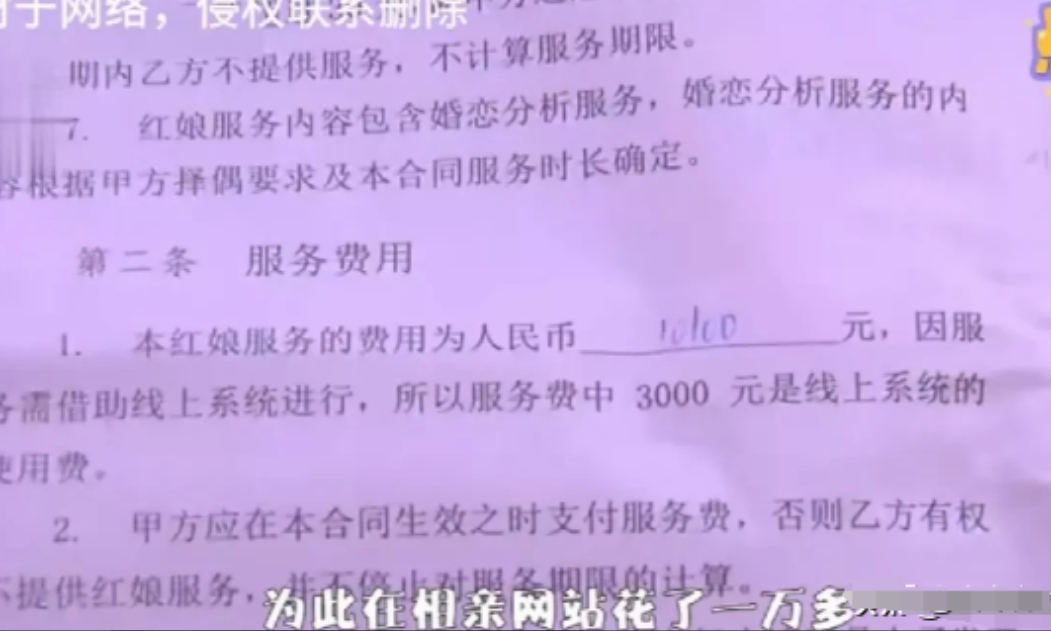 于网络，侵权联系删除
期内乙方不提供服务，不计算服务期限。
7. 红娘服务内容包含婚恋分析服务，婚恋分析服务的内
容根据甲方择偶要求及本合同服务时长确定。
第二条 服务费用
1. 本红娘服务的费用为人民币 10100 元，因服
务需借助线上系统进行，所以服务费中 3000 元是线上系统的
使用费。
2. 甲方应在本合同生效之时支付服务费，否则乙方有权
不提供红娘服务，并不停止对服务期限的计算。
为此在相亲网站花了一万多